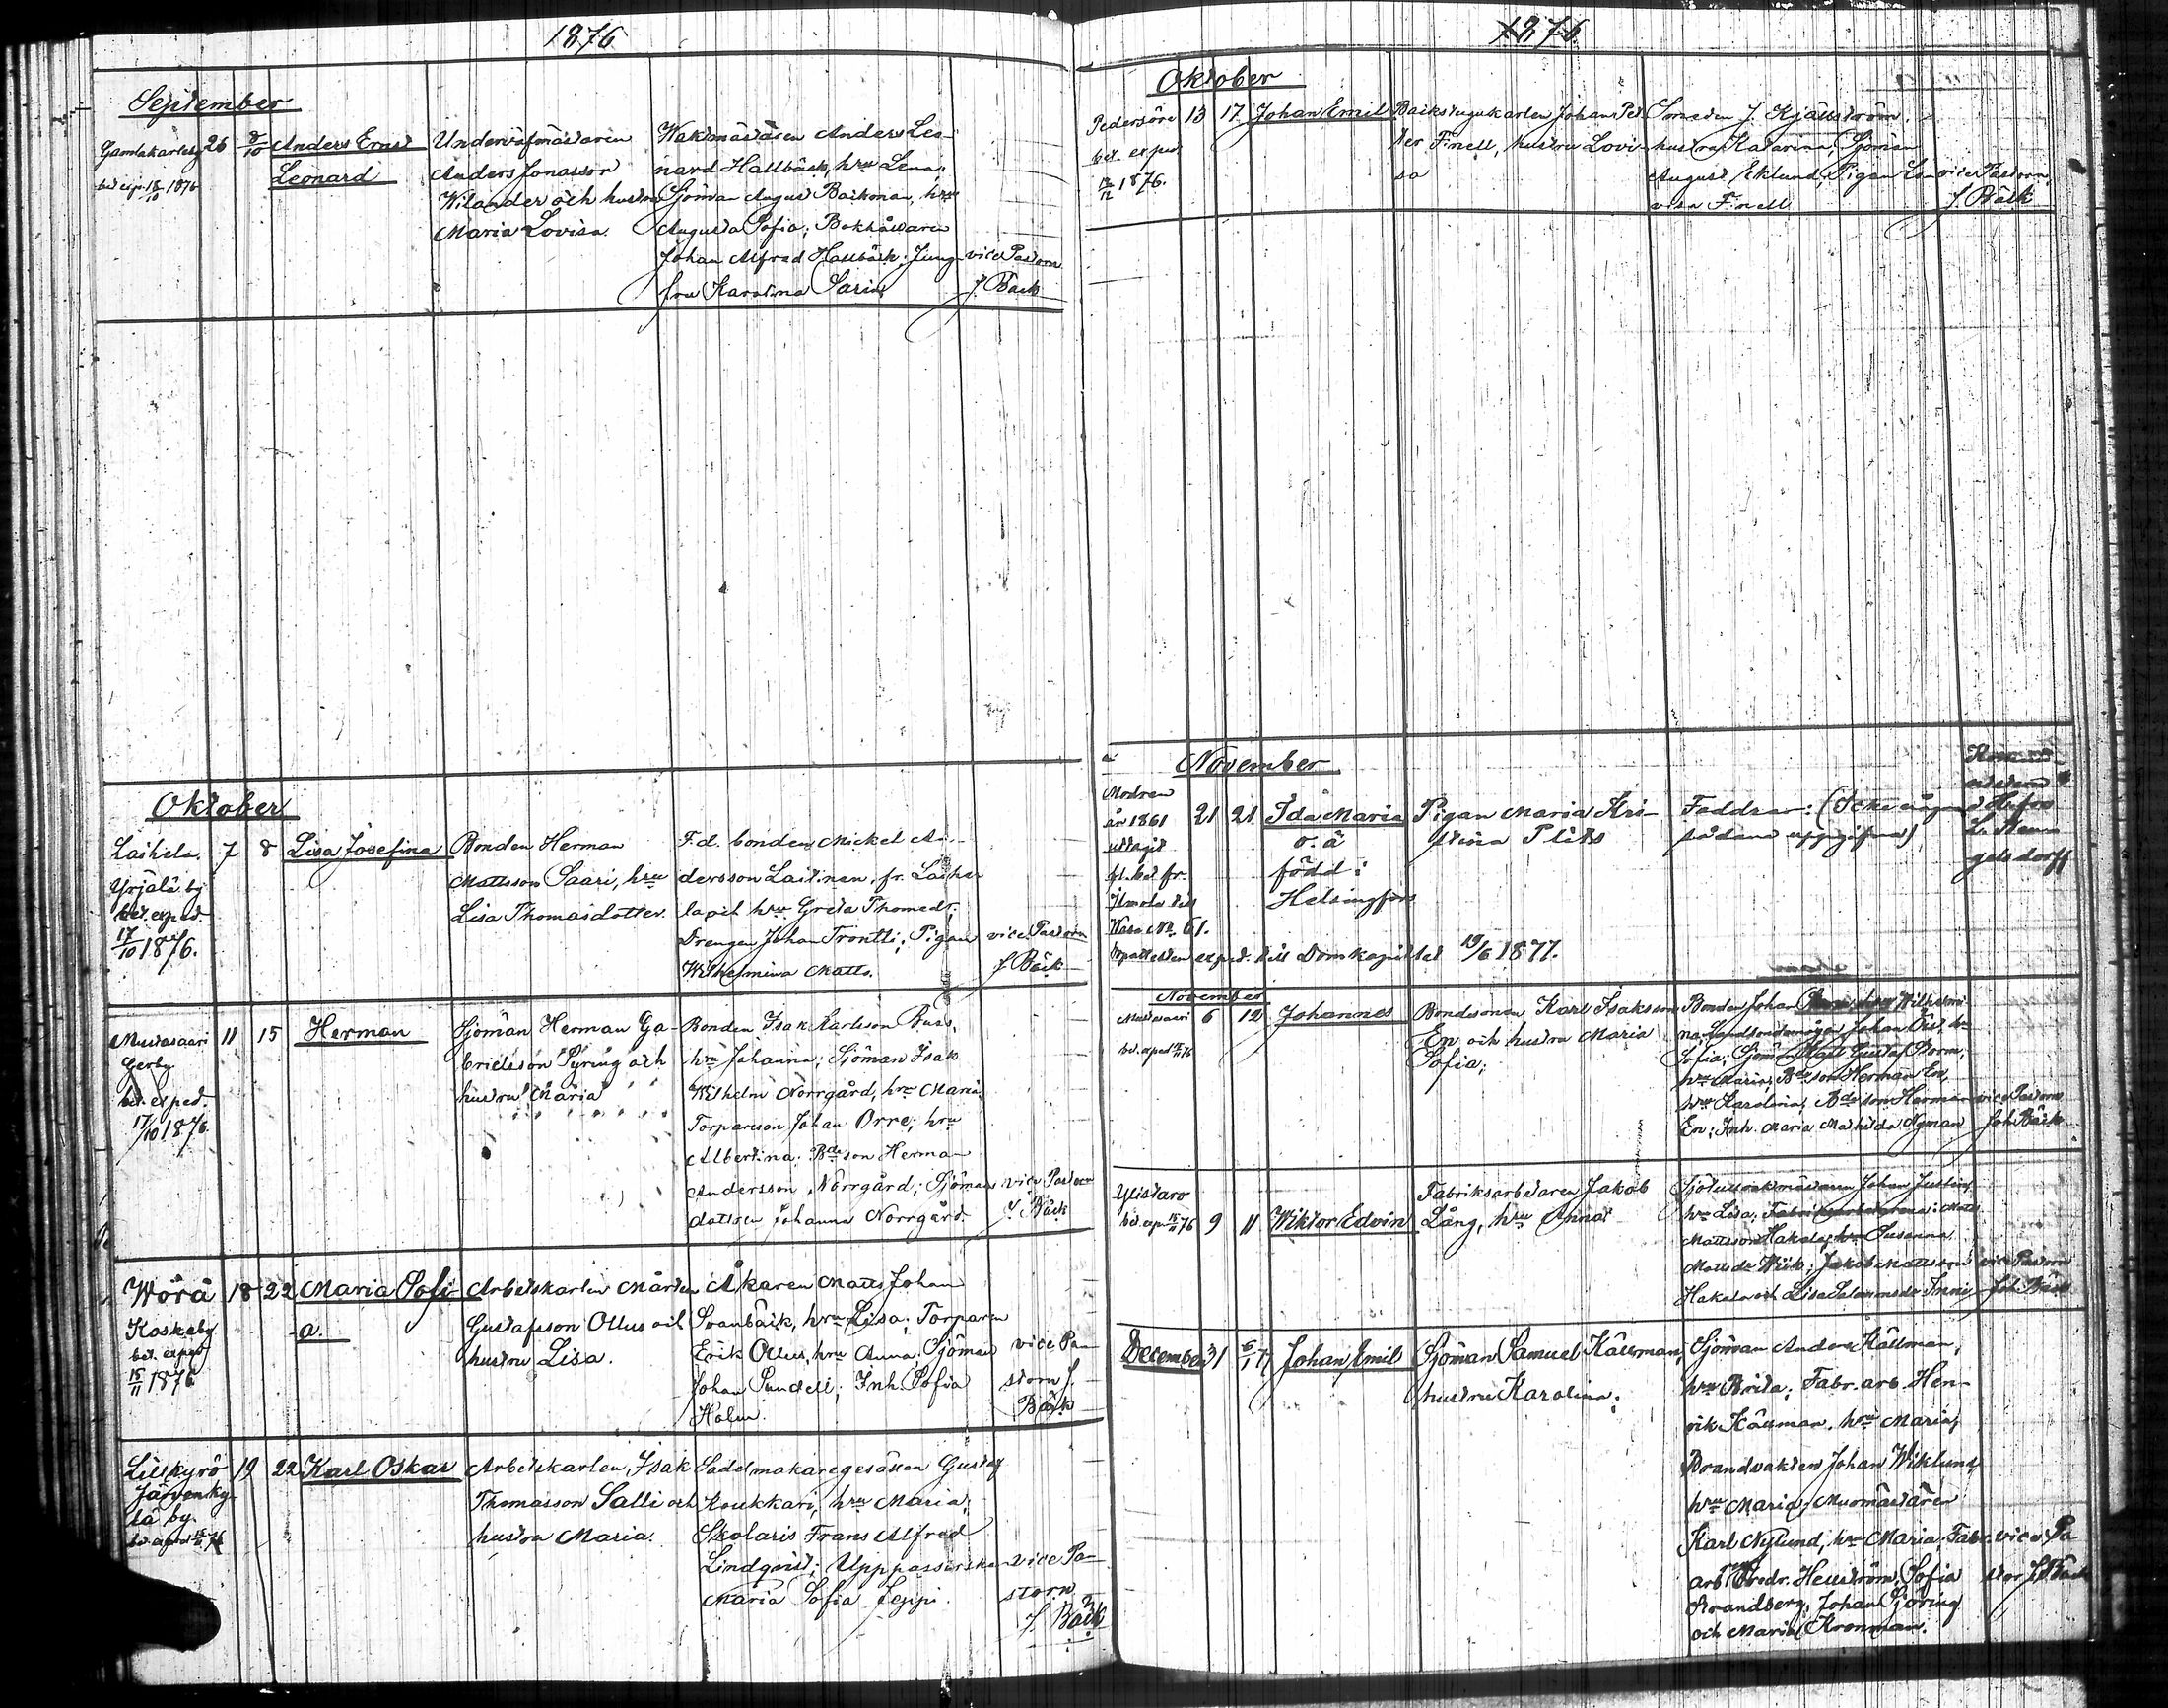 1876
September
Gamlakarleby 26 8/10 Anders Ernst Leonard
bet. exp. 18/10 1876
Anders Jonasson
Wilander och hustru
Maria Lovisa.
Waktmästaren Anders Leo-
nard Hallbäck, hru Lena;
Sjöman August Backman, hru
Augusta Sofia; Bokhållaren
Johan Alfred Hallbäck; Jung-
fru Karolina Sarin
vice Pastorn
J. Bäck
Oktober
Laihela 7 8 Lisa Josefina
Yrjälä by
bet. exped.
17/10 1876.
Bonden Herman
Mattsson Saari, hru
Lisa Thomasdotter.
F.d. bonden Mickel An-
dersson Laitinen fr. Laihe-
la hru Greta Thomedr;
Drengen Johan Trontti; Pigan
Wilhelmina Matts.
vice Pastorn
J. Bäck
Mustasaari 11 15 Herman
Gerby
bet. exped.
17/10 1876.
Sjöman Herman Ga-
brielsson Pyring och
hustru Maria
Bonden Isak Karlsson Buss,
hru Johanna; Sjöman Isak
Wilhelm Norrgård, hru Maria;
Torpareson Johan Orre, hru
Albertina; Bdeson Herman
Andersson Norrgård; Sjömans
dottren Johanna Norrgård.
vice Pastorn
J. Bäck
Wörå 18 22 Maria Sofi-
a.
Koskeby
bet. exped
15/11 1876
Arbetskarlen Mårten
Gustafsson Ollus och
hustru Lisa.
Åkaren Matts Johan
Svanbäck, hru Lisa; Torparen
Erik Ollus, hru Anna; Sjöman
Johan Sundell; Inh. Sofia
Holm.
vice Pa-
storn J.
Bäck
Lillkyrö 19 22 Karl Oskar
Järvenky-
lä by.
bet. exped 15/11 76
Arbetskarlen Isak
Thomasson Salli och
hustru Maria.
Sadelmakaregesällen Gustaf
Koukkari, hru Maria;
Skolaris Frans Alfred
Lindqvist; Uppasserskan
Maria Sofia Seppi.
vice Pa-
storn
J. Bäck
1876
Oktober
Pedersöre 13 17 Johan Emil
bet. exped.
12/12 1876.
Backstugukarlen Johan Pet-
ter Finell, hustru Lovi-
sa
Smeden J. Kjällström,
hustru Katarina; Sjöman
August Eklund, Pigan Lo-
visa Finell
vice Pastorn
J. Bäck
November
Modren
år 1861
uttagit
fl. bet fr.
Ilmola till
Wasa No 61.
21 21 Ida Maria
o. ä
född i
Helsingfors
Pigan Maria Kri-
stina Plits
Faddrar: (Icke några
sådana uppgifna)
exped. till Domkapitlet 19/6 1877.
November
Mustasaari 6 12 Johannes
Bondesonen Karl Isaksson
En och hustru Maria
Sofia;
Bonden Johan
Wilhelmi-
na; Johan Öst, hru
Sofia; Sjöman Karl Gustaf Storm,
hru Maria; Bdeson Herman En,
hru Karolina; Bdeson Herman
En; Inh. Maria Mathilda Nyman
vice Pastorn
Joh. Bäck
Ylistaro
bet. exp. 15/11 76 9 11 Wiktor Edvin
Fabriksarbetaren Jakob
Lång, hru Anna
Johan Justin,
hru Lisa; Fabriksarbetarena: Matts
Mattsson Hakala, hru Susanna
Mattsdr Wiik; Jakob Mattsson
Hakala och Lisa Salomonsdr
vice Pastorn
Joh. Bäck
December 31 6/1 77 Johan Emil
Sjöman Samuel Källman,
hustru Karolina;
Sjöman Anders Källman,
hru Brita; Fabr. arb. Hen-
rik Källman, hru Maria;
Brandvakten Johan Wiklund,
hru Maria; Murmästaren
Karl Nylund, hru Maria; Fabr.
arb. Fredr. Hellström; Sofia
Strandberg; Johan Sjöring
och Maria Kronman.
vice Pa-
stor J. Bäck